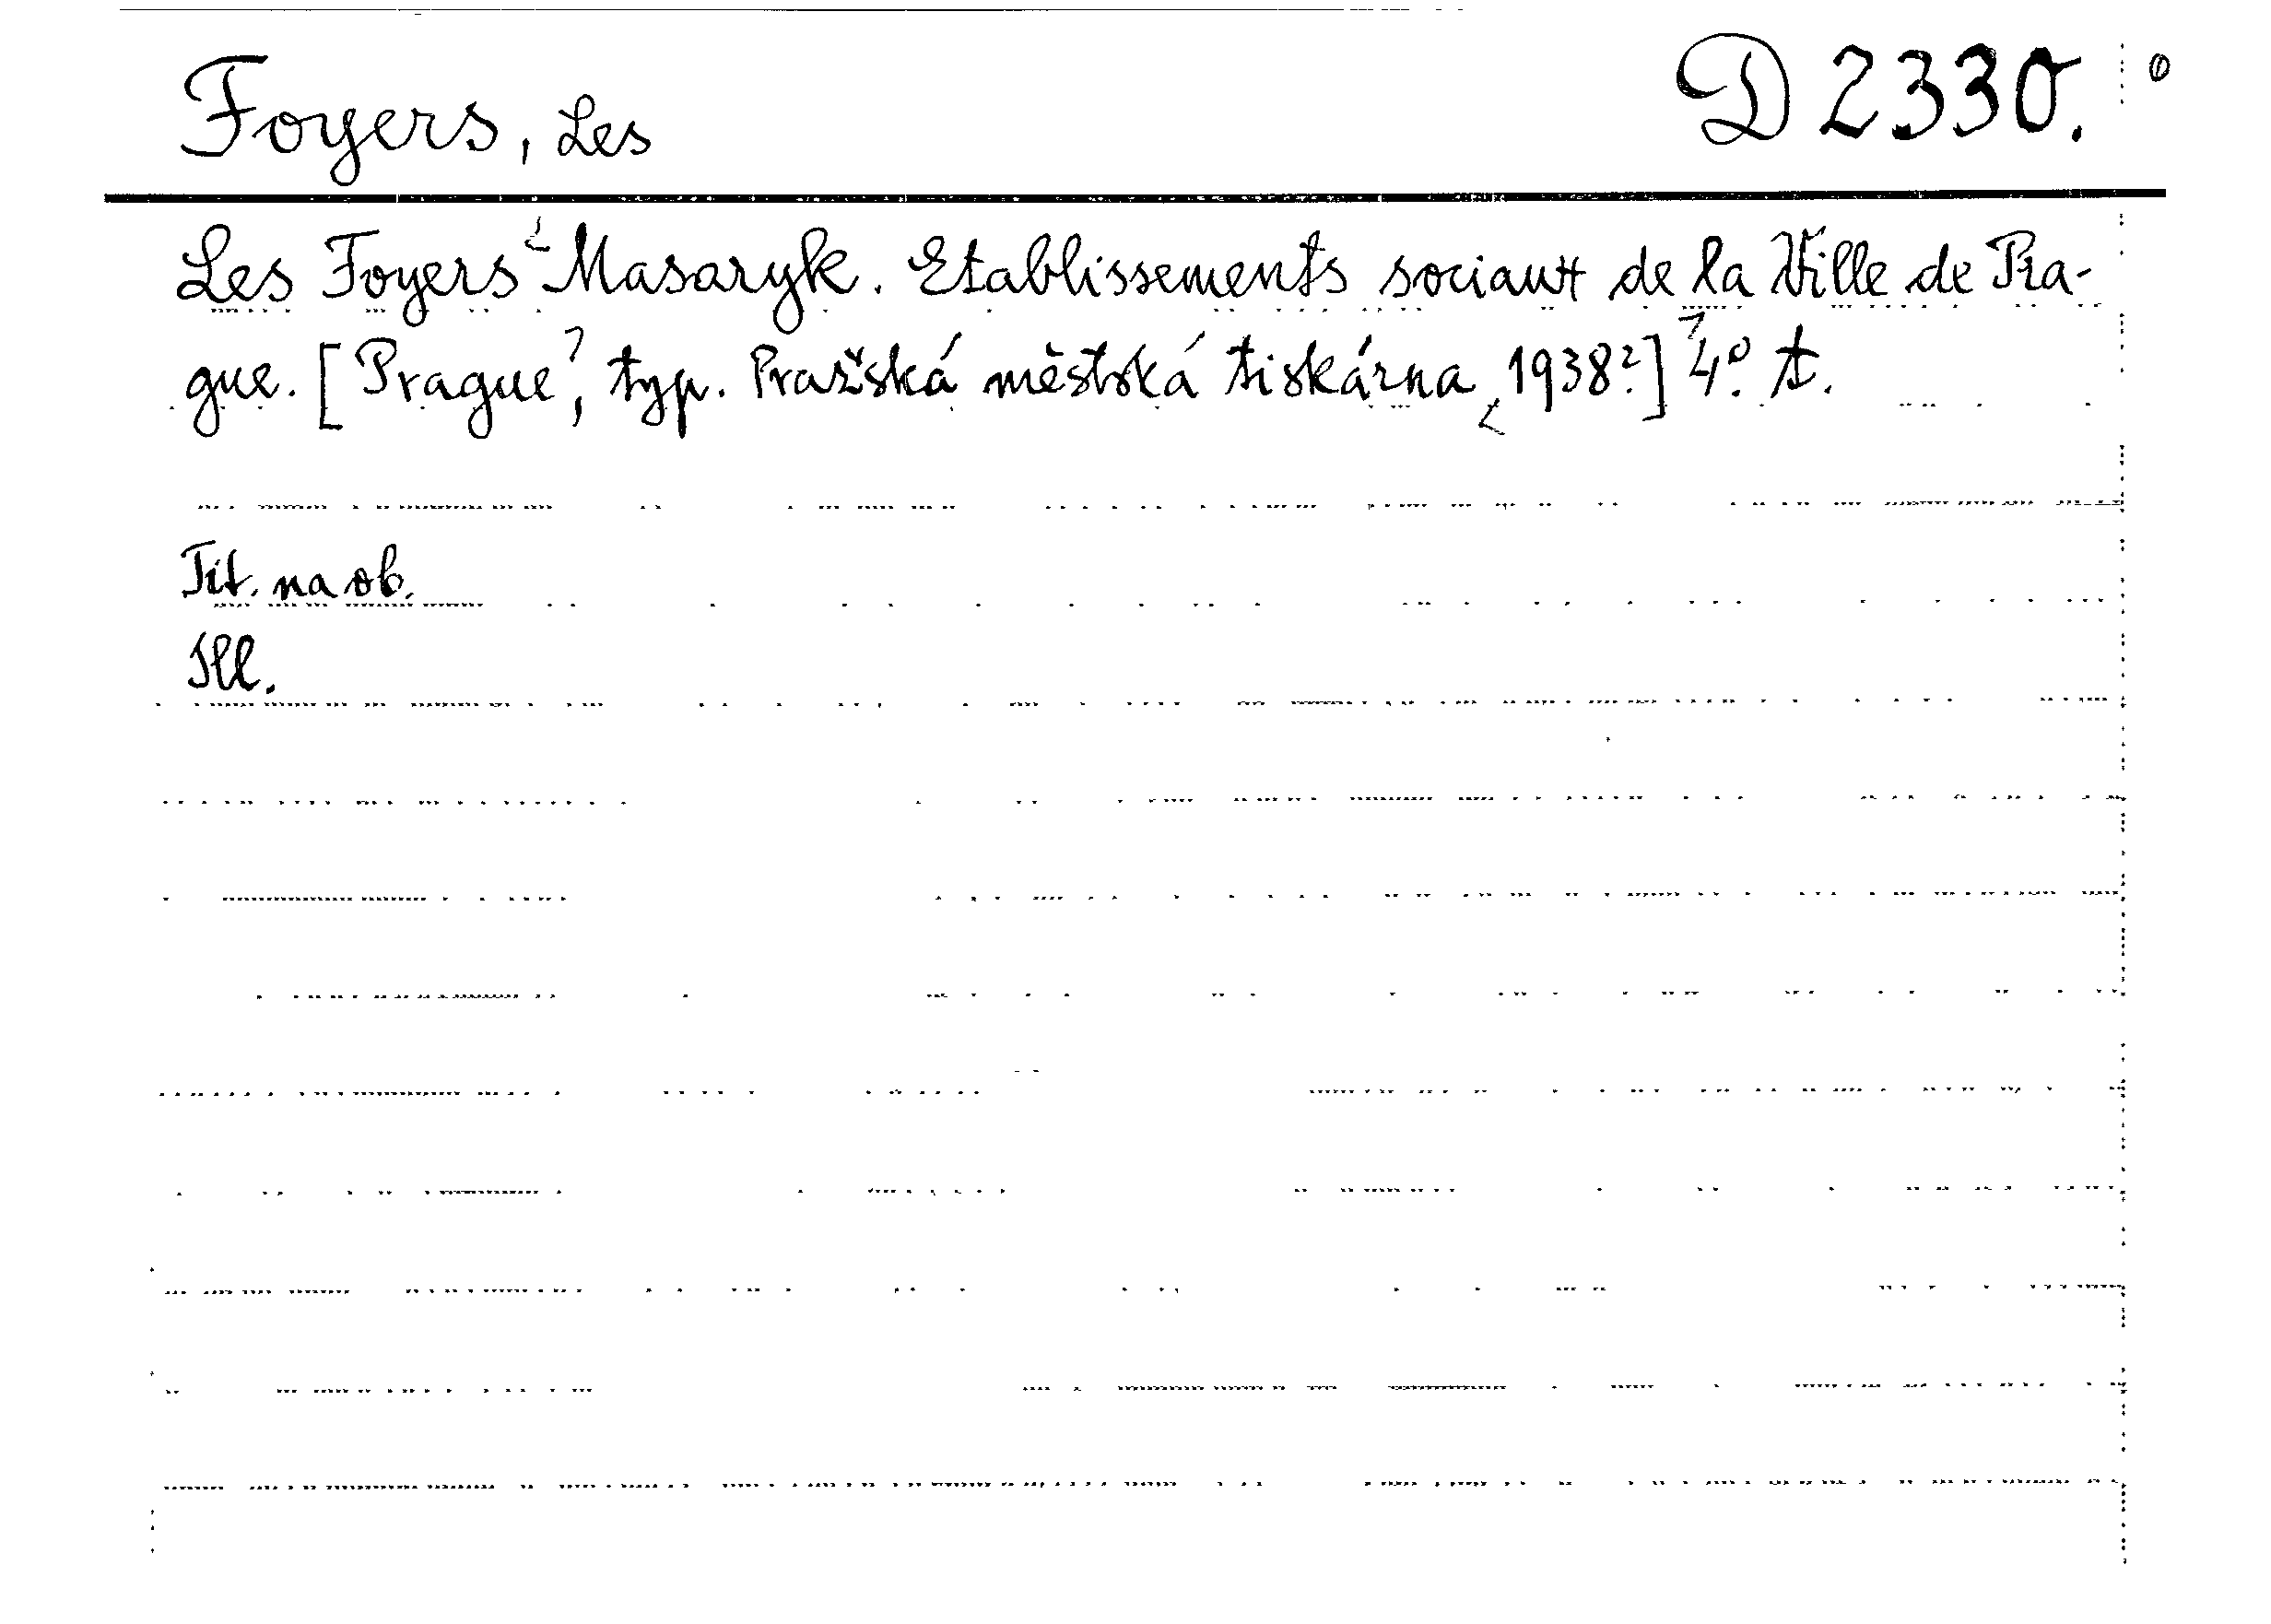 Foyers, Les
D 2330.
Les Foyers Masaryk. Etablissements sociaux de la Ville de Pra-
gue. [Prague, typ. Pražská městská tiskárna 1938?] 4°. t.
Tit. na ob.
Ill.